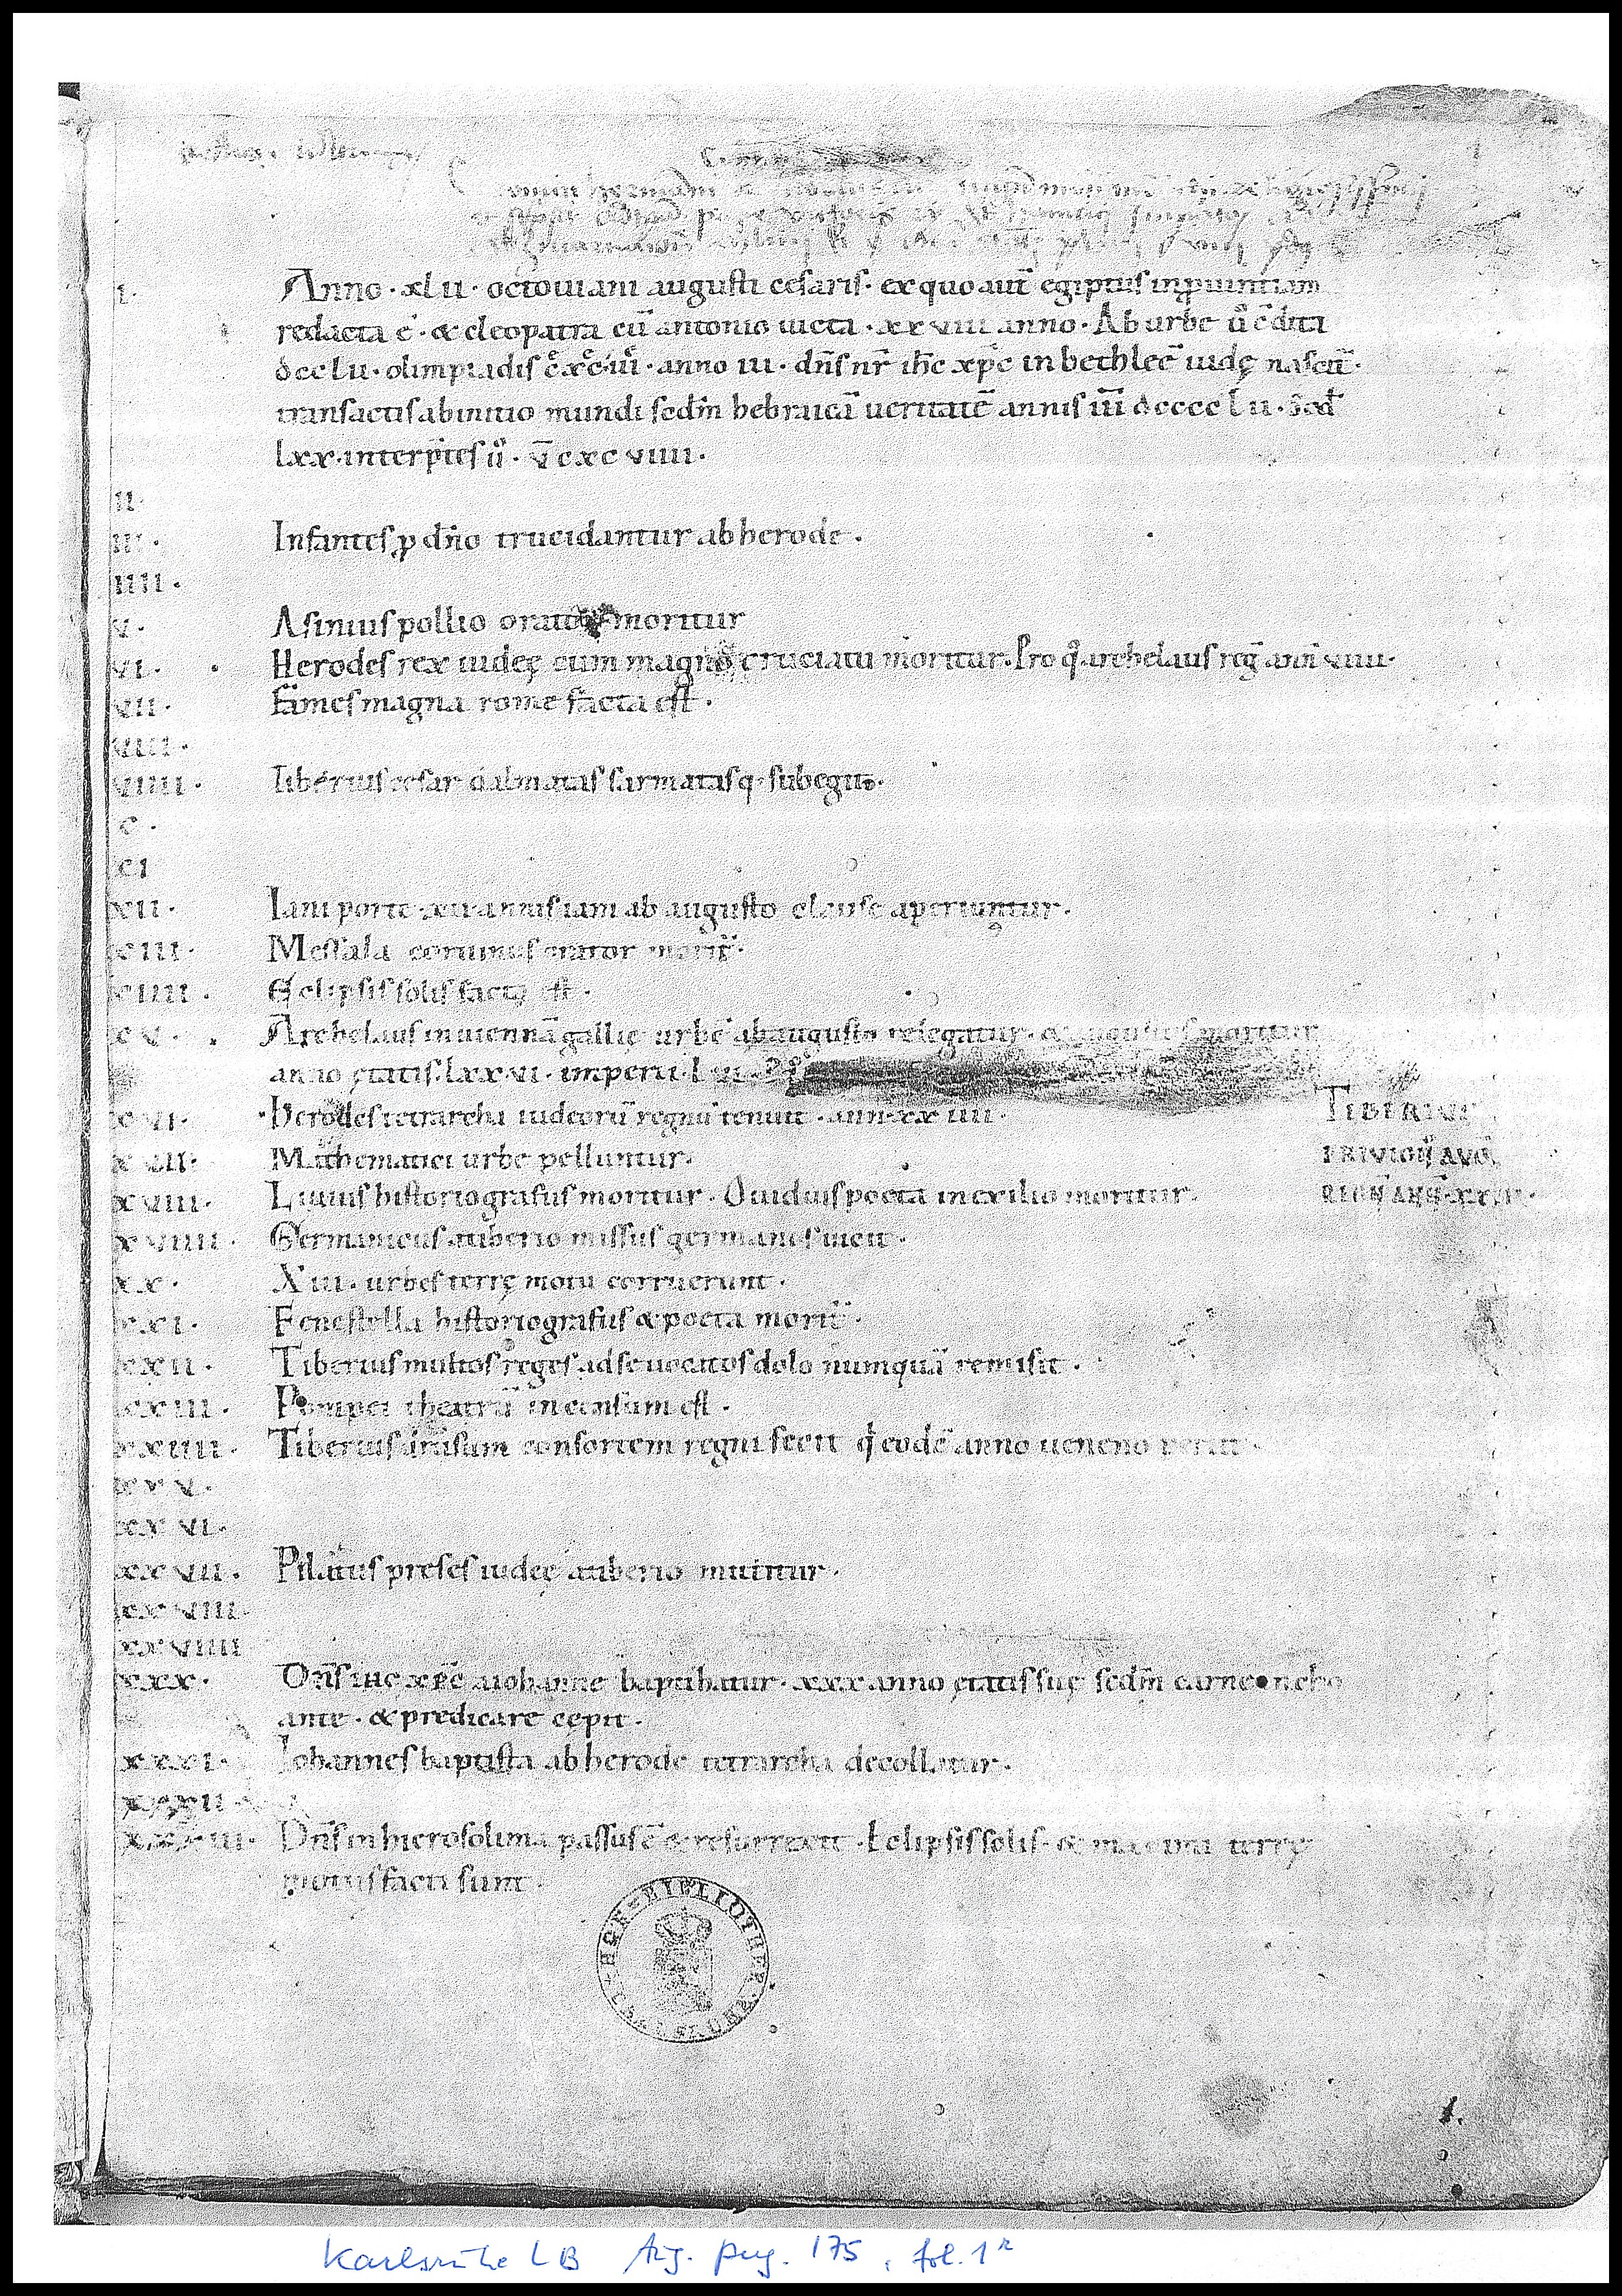 I. Anno · xlii · octouiani augusti cesaris · ex quo aut̄ egiptus in ꝓuintiam
redacta ē · & cleopatra cū antonio uicta · xxviii anno · Ab urbe ū c̄dita
dcclii · olimpiadis · anno iii · dn̄s nr̄ ihc̄ xpc̄ in bethleē iudę nascit̄ ·
transactis ab initio mundi sed̄m hebraicā ueritatē annis iii̅ dcccclii · sed̄
lxx · interp̄tes ū · v̅cxcviiii ·
II ·
III · Infantes ꝓ dn̄o trucidantur ab herode ·
IIII ·
V · Asinius pollio orator moritur
VI · Herodes rex iudeę cum magno cruciatu moritur · Pro q̊ archelaus reḡ ann̄ viiii ·
VII · Fames magna rome facta est ·
VIII ·
VIIII · Tiberius cesar dalmatas sarmatasq · subegit ·
X ·
XI
XII · Iani porte · xii annis iam ab augusto clause aperiuntur ·
XIII · Messala coruinus orator morit̄ ·
XIIII · Eclipsis solis facta est ·
XV · Archelaus in uiennā gallię urbē ab augusto relegatur · & augustus moritur
anno ętatis · lxxvi · imperii · lvi ·
XVI · Herodes tetrarcha iudeorū regnū tenuit · ann · xxiiii · TIBERIUS
XVII · Mathematici urbe pelluntur · PRIVIGN̄ AVḠ
XVIII · Liuius historiografus moritur · Ouidius poeta in exilio moritur · REGN̄ ANN̄
XVIIII · Germanicus a tiberio missus germanos uicit ·
XX · Xiii · urbes terrę motu corruerunt ·
XXI · Fenestella historiografus & poeta morit̄ ·
XXII · Tiberius multos reges ad se uocatos dolo numquā remisit ·
XXIII · Pompei theatrū incensum est ·
XXIIII · Tiberius drusum consortem regni fecit q̇ eodē anno ueneno periit ·
XXV ·
XXVI ·
XXVII · Pilatus preses iudeę a tiberio mittitur ·
XXVIII ·
XXVIIII
XXX · Dn̄s ihc xpc̄ a iohanne baptibatur · xxx anno ętatis suę sed̄m carnē incho
ante · & predicare cepit ·
XXXI · Iohannes baptista ab herode tetrarcha decollatur ·
XXXII ·
XXXIII · Dn̄s in hierosolima passus ē & resurrexit · Eclipsis solis · & maximi terrę
motus facti sunt ·
1.
Karlsruhe LB Aug. perg. 175, fol. 1r